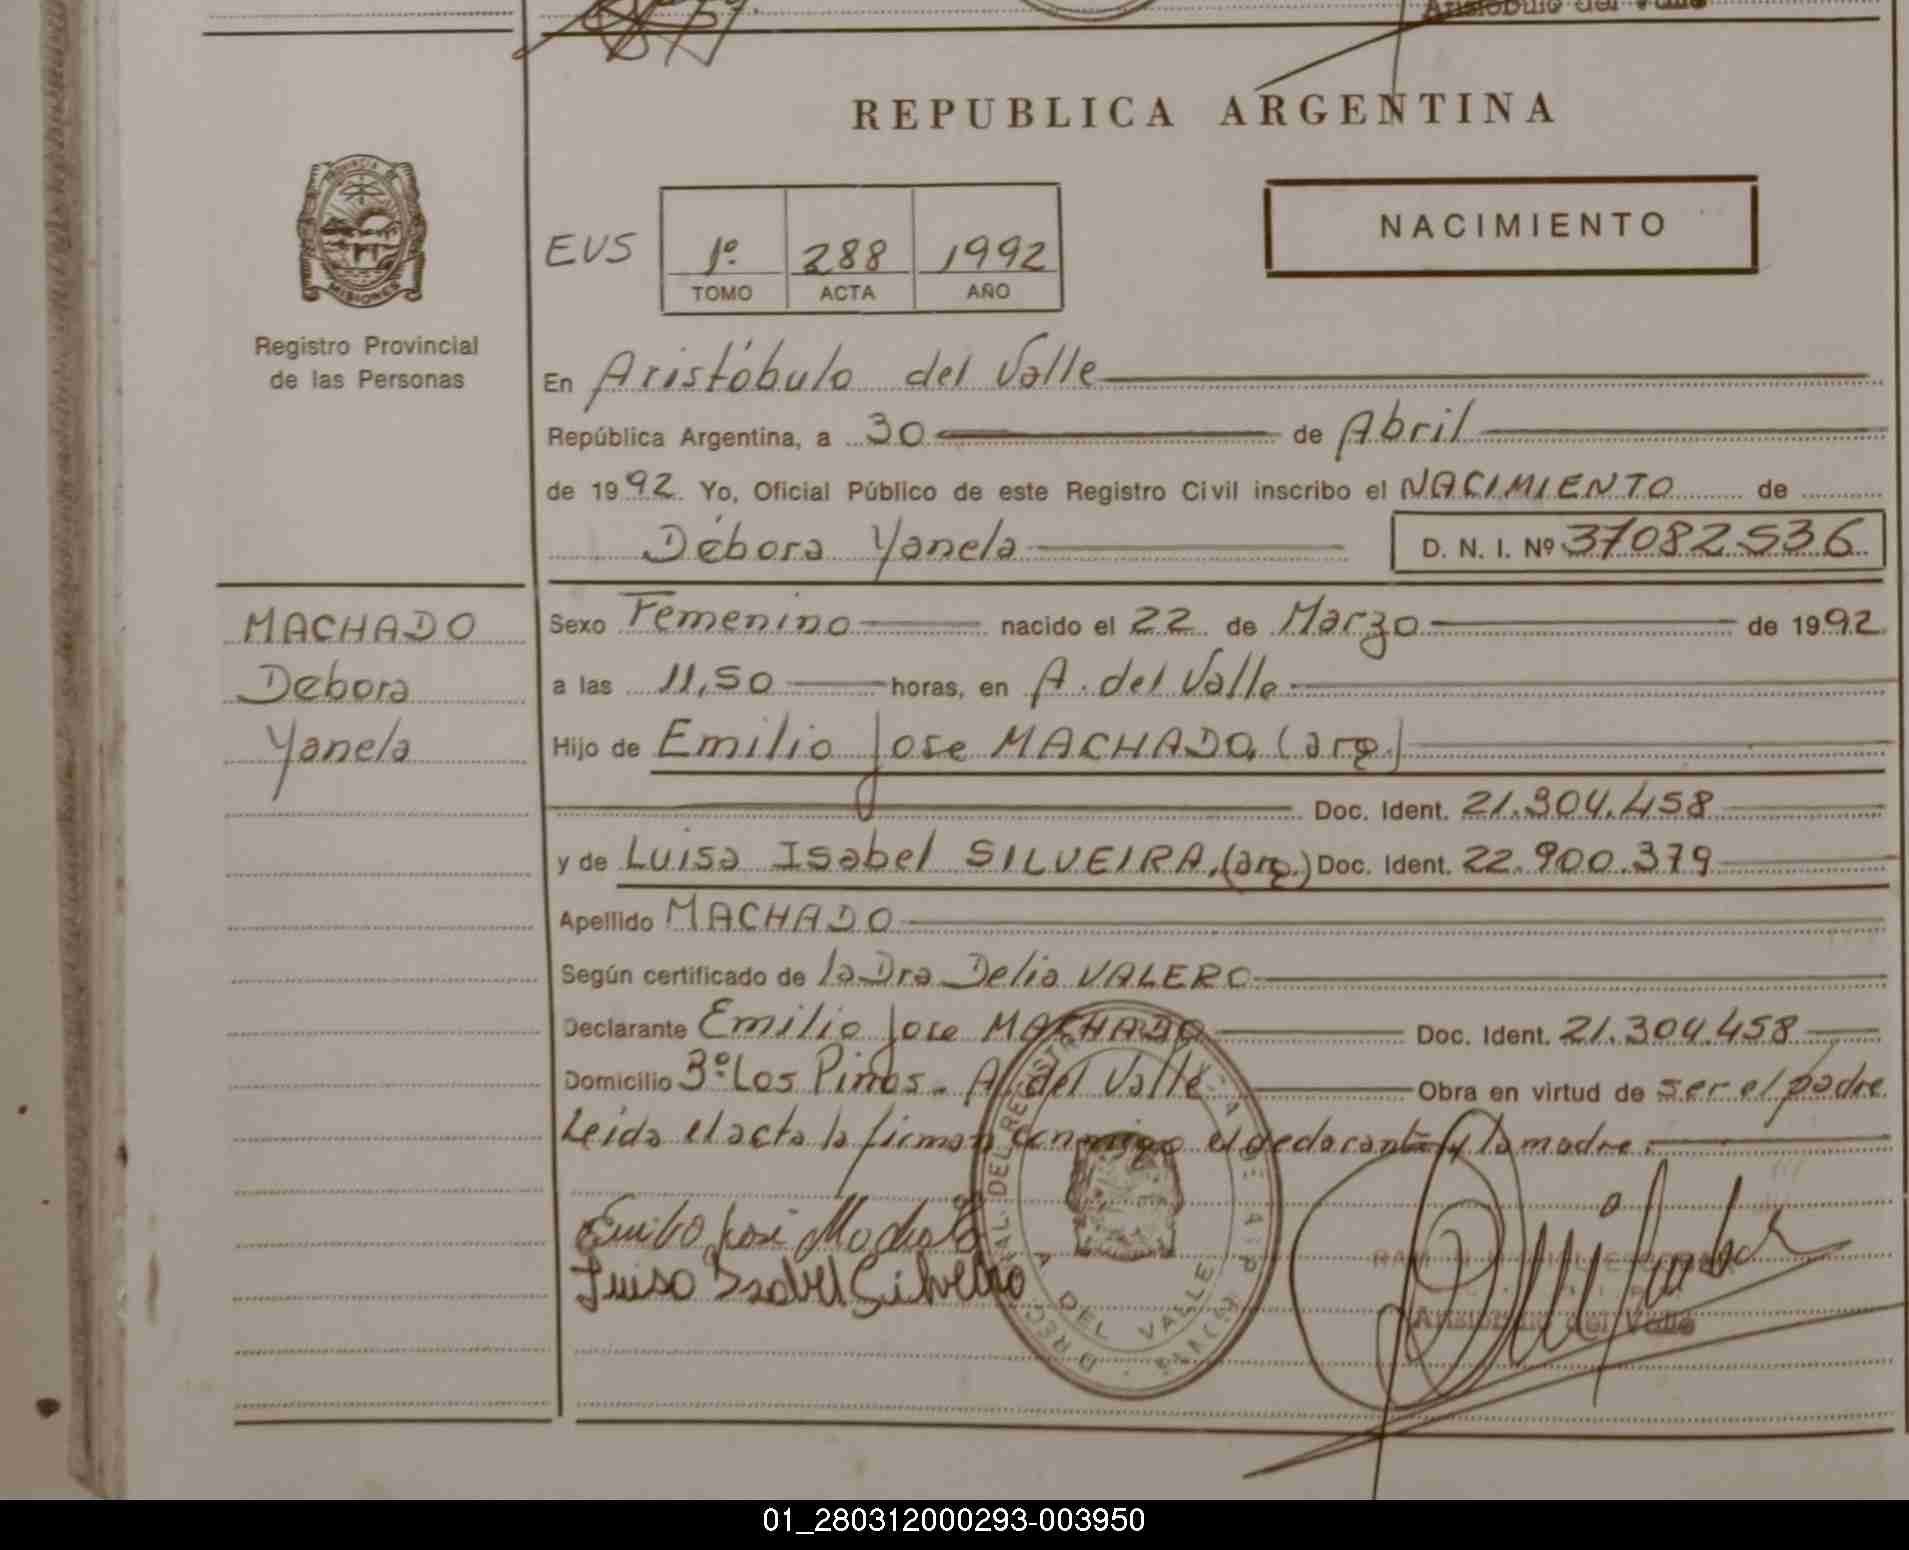 Aristóbulo del Valle
REPUBLICA ARGENTINA
PROVINCIA DE
MISIONES
Registro Provincial
de las Personas
EUS
1º 288 1992
TOMO ACTA AÑO
NACIMIENTO
En Aristóbulo del Valle
República Argentina, a 30 de Abril
de 1992 Yo, Oficial Público de este Registro Civil inscribo el NACIMIENTO de
Débora Yanela D. N. I. Nº 37082536
MACHADO
Debora
Yanela
Sexo Femenino nacido el 22 de Marzo de 1992
a las 11,50 horas, en A. del Valle
Hijo de Emilio Jose MACHADO, (arg.)
Doc. Ident. 21.304.458
y de Luisa Isabel SILVEIRA, (arg.) Doc. Ident. 22.900.379
Apellido MACHADO
Según certificado de la Dra Delia VALERO
Declarante Emilio Jose MACHADO Doc. Ident. 21.304.458
Domicilio Bº Los Pinos - A. del Valle Obra en virtud de ser el padre
Leída el acta la firman conmigo el declarante y la madre.
Emilio José Machado
Luisa Isabel Silveira
DEL VALLE
Aristóbulo del Valle
01_280312000293-003950